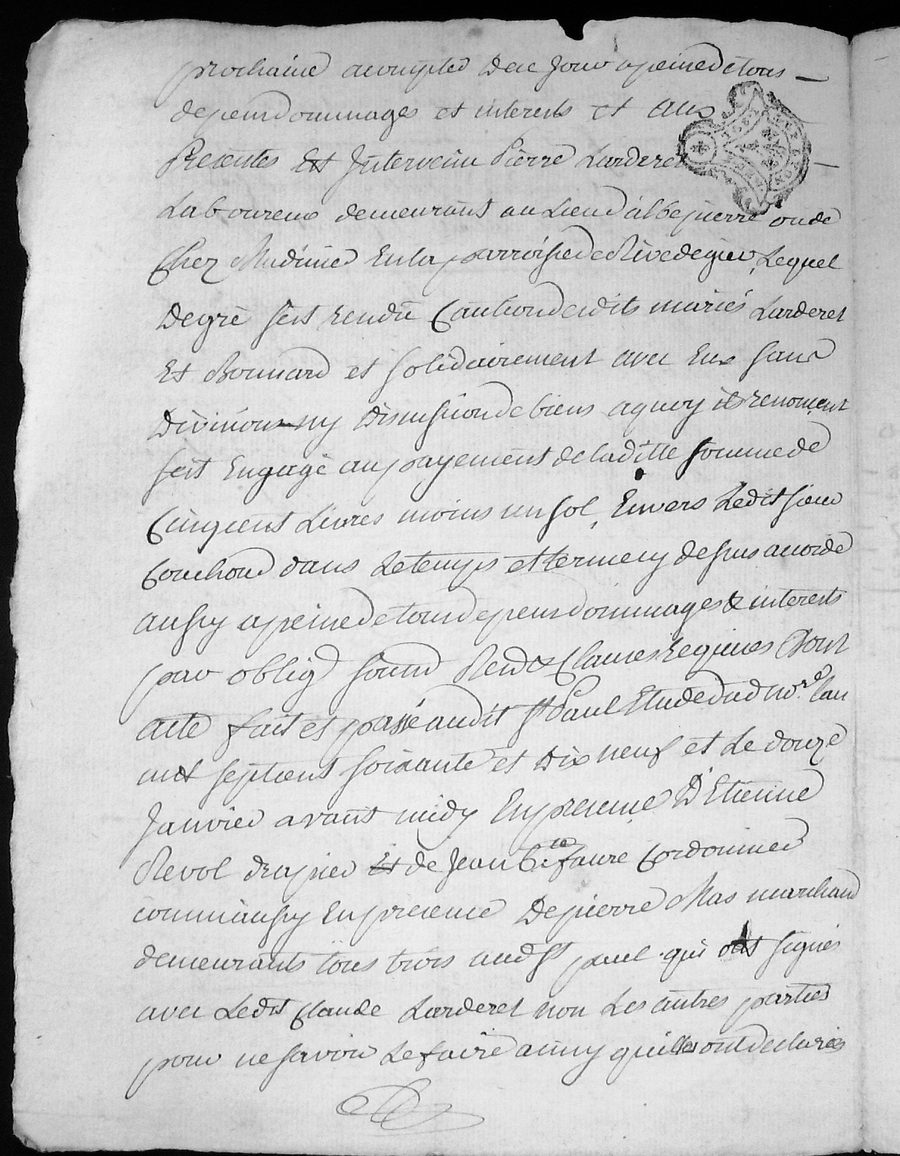 prochaine a compter de ce Jour a peine de tous
depens dommages et interests et aux
Presentes Est Intervenu Pierre Larderet
Laboureur demeurant au Lieu d'albepierre ou de
Chez en la parroisse de Rivedegier, Lequel
De gré sest rendu Caution desdits mariés Larderet
Et Bonnard et solidairement avec Eux sans
Division ny Discussion de biens a quoy ils renoncent
sest Engagé au payement de laditte somme de
Cinq cent Livres moins un sol, Envers Ledit sieur
Couchoud dans Le temps et terme cy dessus accordé
aussy a peine de tous depens dommages & interests
par oblig. soum Ren & Clauses Requises Dont
acte fait et passé audit St Paul Etude dud nore. lan
mil sept cent soixante et Dix neuf et Le douze
Janvier avant midy En presence D'Etienne
Revol drapier Et de Jean Bte faure Cordonnier
comm'aussy En presence De pierre Mas marchand
demeurants tous trois aud St paul qui ont signés
avec Ledit Claude Larderet non Les autres parties
pour ne savoir Le faire ainsy quelles ont declarées